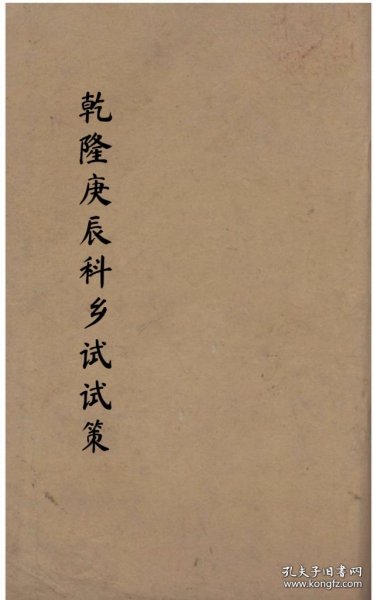 乾隆庚辰科乡试试策
孔夫子旧书网
www.kongfz.com